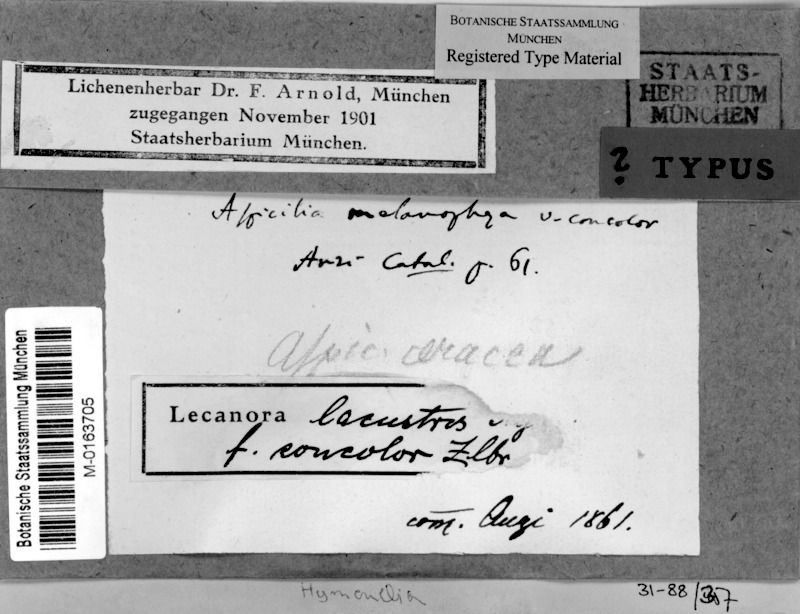 BOTANISCHE STAATSSAMMLUNG
MÜNCHEN
Registered Type Material
STAATS-
HERBARIUM
MÜNCHEN
Lichenenherbar Dr. F. Arnold, München
zugegangen November 1901
Staatsherbarium München.
? TYPUS
Aspicilia melanophaea v. concolor
Anzi Catal. p. 61.
Aspic. ceracea
Lecanora lacustris
f. concolor Zlbr
com. Anzi 1861.
Botanische Staatssammlung München
M-0163705
Hymenelia
31-88/